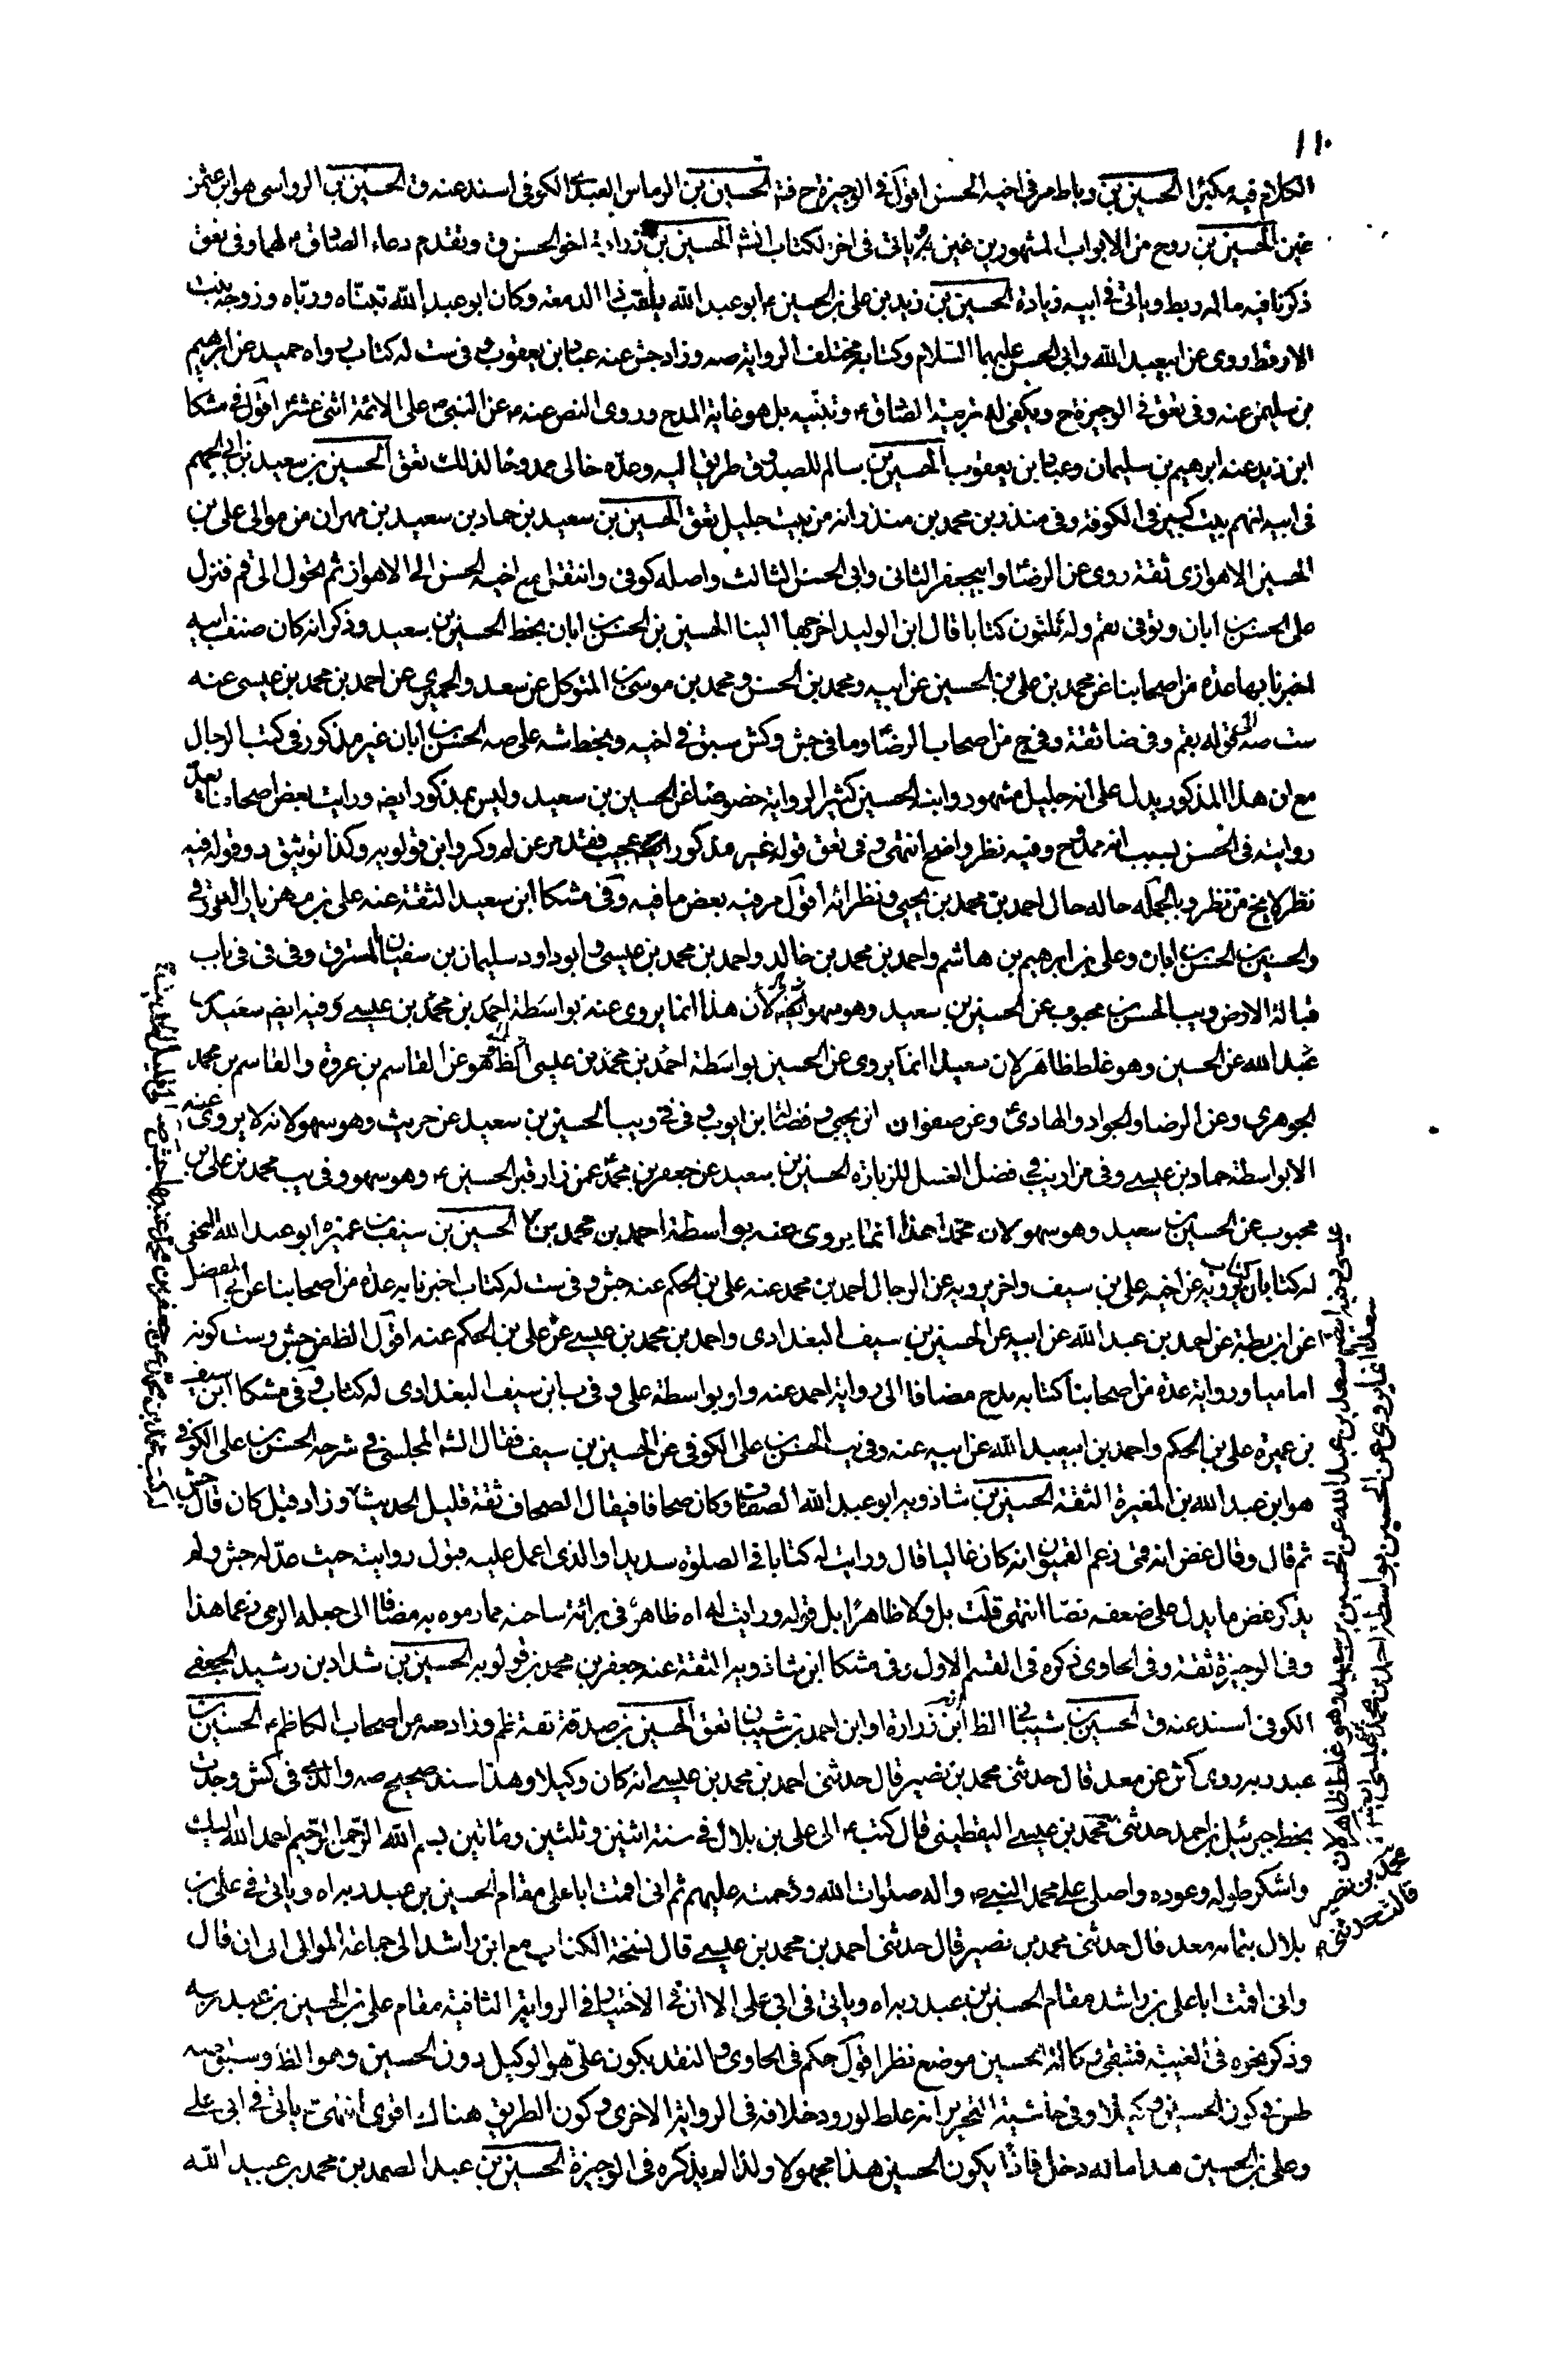 ١١٠
الكلام فيه مكبرا الحسين بن رباط مر في اخيه الحسن اقول في الوجيزة ح فتد الحسين بن الرماس العبدي الكوفي اسند عنه ق الحسين بن الرواسي هو ابن عثمن
الحسين بن روح من الابواب المشهورين ياتي في اخر الكتاب انشه الحسين بن زرارة اخو الحسن ق وتقدم دعاء الصادق ع لهما وفي تعق
ذكرنا فيه ماله ربط وياتي في ابيه زيادة الحسين بن زيد بن علي بن الحسين ع ابو عبد الله يلقب ذا الدمعة وكان ابو عبد الله تبناه ورباه وزوجه بنت
الارقط روى عن ابيعبد الله وابي الحسن عليهما السلام وكتابه مختلف الرواية صه وزاد جش عنه عباد بن يعقوب وفي ست له كتاب رواه حميد عن ابرهيم
بن سليمن عنه وفي تعق في الوجيزة ح ويكفي له تربية الصادق ع وتبنيه بل هو غاية المدح وروى النص عنه ع عن النبي ص على الائمة اثنى عشر اقول في مشكا
ابن زيد عنه ابرهيم بن سليمان وعباد بن يعقوب الحسين بن سالم للصدوق طريق اليه وعده خالي ممدوحا لذلك تعق الحسين بن سعيد بن ابي الجهم
في ابيه انهم بيت كبير في الكوفة وفي منذر بن محمد بن منذر انه من بيت جليل تعق الحسين بن سعيد بن حماد بن سعيد بن مهران من موالي علي بن
الحسين الاهوازي ثقة روى عن الرضا وابيجعفر الثاني وابي الحسن الثالث واصله كوفي وانتقل مع اخيه الحسن الى الاهواز ثم تحول الى قم فنزل
على الحسن بن ابان وتوفى بقم وله ثلثون كتابا قال ابن الوليد اخرجها الينا الحسين بن الحسن بن ابان بخط الحسين بن سعيد وذكر انه كان ضيف ابيه
اخبرنا بها عدة من اصحابنا عن محمد بن علي بن الحسين عن ابيه ومحمد بن الحسن ومحمد بن موسى بن المتوكل عن سعد والحميري عن احمد بن محمد بن عيسى عنه
ست صه الى قوله بقم وفي ضا ثقة وفي ج من اصحاب الرضا وما في جش وكش سبق في اخيه وبخط شه على صه الحسن بن ابان غير مذكور في كتب الرجال
مع ان هذا المذكور يدل على انه جليل مشهور وابنه الحسين كثير الرواية خصوصا عن الحسين بن سعيد وليس بمذكور ايضه ورايت بعض اصحابنا يعد
روايته في الحسن بسبب انه ممدوح وفيه نظر واضح انتهى وفي تعق قوله غير مذكور عجيب فقد مر عن لم وكر وابن قولويه وكذا توثيق د وقوله فيه
نظر لا يخ من نظر وبالجملة حاله حال احمد بن محمد بن يحيى ونظرائه اقول مر فيه بعض ما فيه وفي مشكا ابن سعيد الثقة عنه علي بن مهزيار
والحسين بن الحسن بن ابان وعلي بن ابرهيم بن هاشم واحمد بن محمد بن خالد واحمد بن محمد بن عيسى وابو داود سليمان بن سفين المسترق وفي في في باب
قبالة الارض ويب الحسن بن محبوب عن الحسين بن سعيد وهو سهو لان هذا انما يروى عنه بواسطة احمد بن محمد بن عيسى وفيه ايضه سعد بن
عبد الله عن الحسين وهو غلط ظاهر لان سعيدا انما يروى عن الحسين بواسطة احمد بن محمد بن عيسى وهو عن القاسم بن عروة والقاسم بن محمد
الجوهري وعن الرضا والجواد والهادي ع وعن صفوان بن يحيى وفضالة بن ايوب وفي ويب الحسين بن سعيد عن حريث وهو سهو لانه لا يروى عنه
الا بواسطة حماد بن عيسى وفي مزار يب في فضل الغسل للزيارة الحسين بن سعيد عن جعفر بن محمد عمن زار قبر الحسين ع وهو سهو وفي يب محمد بن علي بن
محبوب عن الحسين بن سعيد وهو سهو لان محمدا هذا انما يروى عنه بواسطة احمد بن محمد الحسين بن سيف بن عميرة ابو عبد الله النخعي
له كتابان كتاب يرويه عن اخيه علي بن سيف واخر يرويه عن الرجال احمد بن محمد عنه علي بن الحكم عنه جش وفي ست له كتاب اخبرنا به عدة من اصحابنا عن ابي المفضل
عن ابن بطة عن احمد بن عبد الله عن ابيه عن الحسين بن سيف البغدادي واحمد بن محمد بن عيسى عن علي بن الحكم عنه اقول الظ من جش وست كونه
اماميا ورواية عدة من اصحابنا كتابه مدح مضافا الى رواية احمد عنه ولو بواسطة علي وفي ب ابن سيف البغدادي له كتاب وفي مشكا ابن سيف
بن عميرة علي بن الحكم واحمد بن ابيعبد الله عن ابيه عنه وفي يب الحسن بن علي الكوفي عن الحسين بن سيف فقال الشه المجلسي في شرحه الحسن بن علي الكوفي
هو ابن عبد الله بن المغيرة الثقة الحسين بن شاذويه ابو عبد الله الصفار وكان صحافا فيقال الصحاف ثقة قليل الحديث وزاد قيل كان قال جش
ثم قال وقال غض انه قمي زعم القميون انه كان غاليا قال ورايت له كتابا في الصلوة سديدا والذي اعمل عليه قبول روايته حيث عدله جش ولم
يذكر غض ما يدل على ضعفه نصا انتهى قلت بل ولا ظاهرا بل قوله ورايت له اه ظاهر في برائة ساحته مما رموه به مضافا الى جعله الرمي زعما هذا
وفي الوجيزة ثقة وفي الحاوي ذكره في القسم الاول وفي مشكا ابن شاذويه الثقة عنه جعفر بن محمد بن قولويه الحسين بن شداد بن رشيد الجعفي
الكوفي اسند عنه ق الحسين بن شيباني الظ انه ابن زرارة او ابن احمد بن شيبان تعق الحسين بن صدقة ثقة ظم وزاد صه من اصحاب الكاظم ع الحسين بن
عبد ربه روى كش عن معد قال حدثني محمد بن نصير قال حدثني احمد بن محمد بن عيسى انه كان وكيلا وهذا سند صحيح صه والذي في كش وجدت
بخط جبرئيل بن احمد حدثني محمد بن عيسى اليقطيني قال كتب ع الى علي بن بلال في سنة اثنين وثلثين ومائتين بسم الله الرحمن الرحيم احمد الله اليك
واشكر طوله وعوده واصلي على محمد النبي ص واله صلوات الله ورحمته عليهم ثم اني اقمت ابا علي مقام الحسين بن عبد ربه اه وياتي في علي بن
بلال بتمامه معد قال حدثني محمد بن نصير قال حدثني احمد بن محمد بن عيسى قال نسخة الكتاب مع ابن راشد الى جماعة الموالي الى ان قال
واني اقمت ابا علي بن راشد مقام الحسين بن عبد ربه اه وياتي في ابي علي الا ان في الاختيار في الرواية الثانية مقام علي بن الحسين بن عبد ربه
وذكر نحوه في الغيبة فتبقى وكالة الحسين موضع نظر اقول حكم في الحاوي والنقد بكون علي هو الوكيل دون الحسين وهو الظ وسبق
طس في كون الحسين وكيلا وفي حاشية التحرير انه غلط لورود خلافه في الرواية الاخرى وكون الطريق هناك اقوى انتهى ياتي في ابي علي
وعلي بن الحسين هذا ماله دخل فاذا يكون الحسين هذا مجهولا ولذا لم يذكره في الوجيزة الحسين بن عبد الصمد بن محمد بن عبيد الله
سعد بن عبد الله عن الحسين بن سعيد وهو غلط ظاهر لان
سعدا انما يروى عن الحسين بواسطة احمد بن محمد بن عيسى
محمد بن نصير
قال حدثني